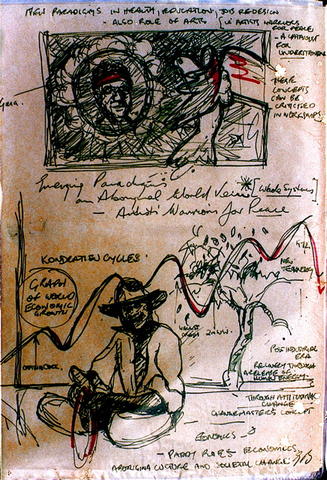 NEW PARADIGMS IN HEALTH, EDUCATION, JOB REDESIGN
- ALSO ROLE OF ARTS
ARTISTS WARRIORS
FOR PEACE
- A CATALYST
FOR
UNDERSTANDING
THESE
CONCEPTS
CAN BE
CRITICISED
IN WORKSHOPS
Gaia.
Emerging Paradigms
an Aboriginal World View
[Whole Systems]
- Artists Warriors for Peace
KONDRATIEV CYCLES
GRAPH
OF WORLD
ECONOMIC
GROWTH
NEW
TECHNOLOGY
POST INDUSTRIAL
ERA
RECOVERY THROUGH
A RELEASE OF
HUMAN ENERGY
THROUGH ATTITUDINAL
CHANGE
CHANGEMASTERS CONCEPT
- PADDY ROE'S ECONOMICS
ABORIGINAL CULTURE AND SOCIETAL CHANGE